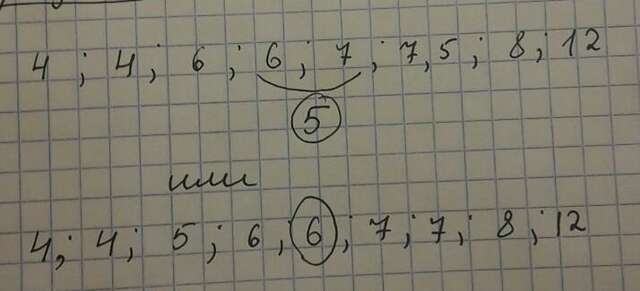 4 ; 4 ; 6 ; 6 ; 7 ; 7,5 ; 8 ; 12
5
или
4 ; 4 ; 5 ; 6 ; 6 ; 7 ; 7 ; 8 ; 12